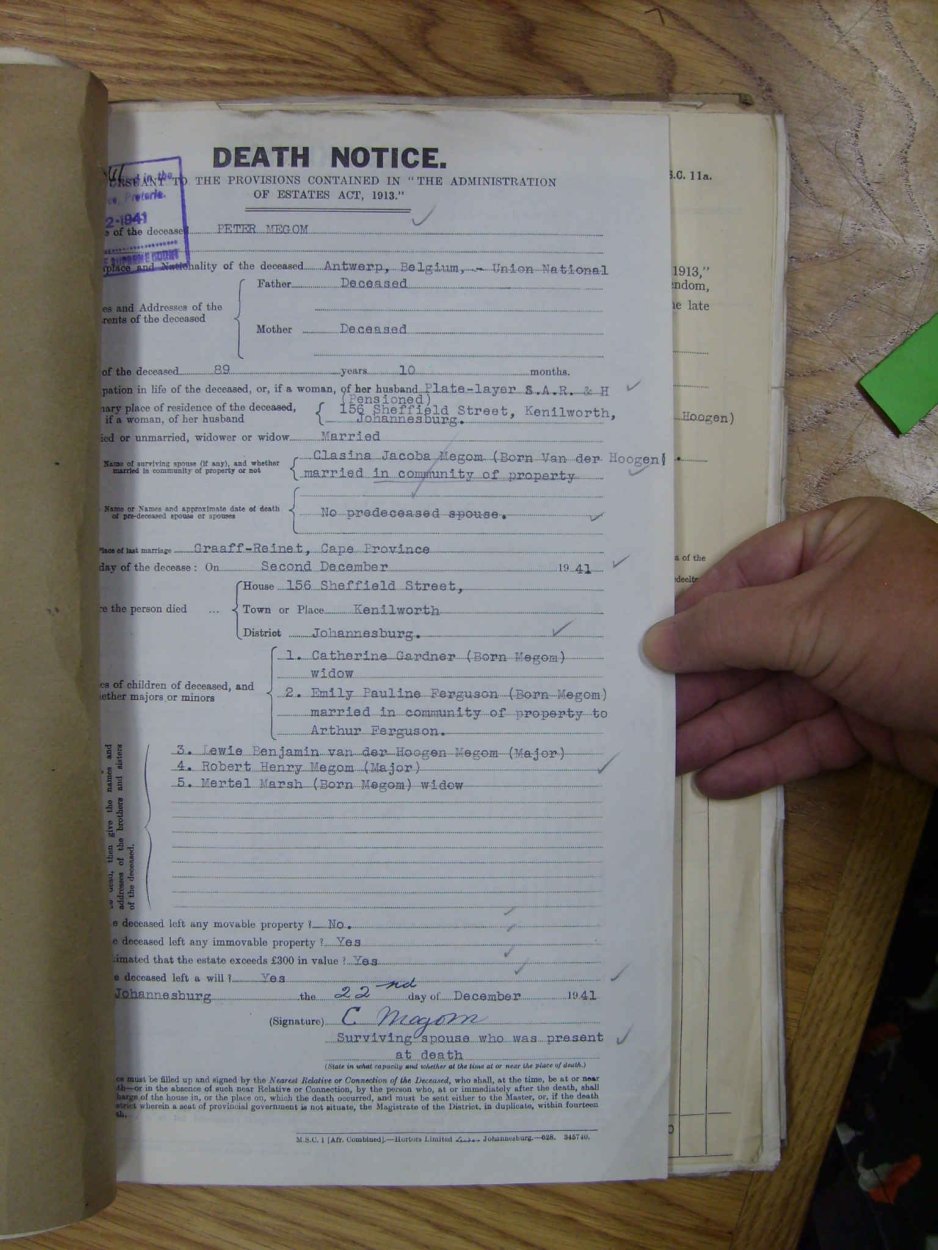 DEATH NOTICE.
TO THE PROVISIONS CONTAINED IN "THE ADMINISTRATION
OF ESTATES ACT, 1913."
S.C. 11a.
in the
Pretoria.
2-1941
SUPREME COURT
of the deceased PETER MEGOM
place and Nationality of the deceased Antwerp, Belgium, - Union National
Father Deceased
es and Addresses of the
rents of the deceased
Mother Deceased
of the deceased 89 years 10 months.
pation in life of the deceased, or, if a woman, of her husband Plate-layer S.A.R. & H
(Pensioned)
nary place of residence of the deceased, 156 Sheffield Street, Kenilworth,
if a woman, of her husband Johannesburg.
ied or unmarried, widower or widow Married
Name of surviving spouse (if any), and whether Clasina Jacoba Megom (Born Van der Hoogen)
married in community of property or not married in community of property
Name or Names and approximate date of death
of pre-deceased spouse or spouses No predeceased spouse.
Place of last marriage Graaff-Reinet, Cape Province
day of the decease: On Second December 1941
House 156 Sheffield Street,
re the person died ... Town or Place Kenilworth
District Johannesburg.
1. Catherine Gardner (Born Megom)
widow
es of children of deceased, and 2. Emily Pauline Ferguson (Born Megom)
ether majors or minors married in community of property to
Arthur Ferguson.
3. Lewie Benjamin van der Hoogen Megom (Major)
4. Robert Henry Megom (Major)
5. Mertel Marsh (Born Megom) widow
dead, then give the names and
addresses of the brothers and sisters
of the deceased.
e deceased left any movable property? No.
e deceased left any immovable property? Yes
imated that the estate exceeds £300 in value? Yes
e deceased left a will? Yes
Johannesburg the 22nd day of December 1941
(Signature) C Megom
Surviving spouse who was present
at death
(State in what capacity and whether at the time at or near the place of death.)
ce must be filled up and signed by the Nearest Relative or Connection of the Deceased, who shall, at the time, be at or near
th—or in the absence of such near Relative or Connection, by the person who, at or immediately after the death, shall
harge of the house in, or the place on, which the death occurred, and must be sent either to the Master, or, if the death
strict wherein a seat of provincial government is not situate, the Magistrate of the District, in duplicate, within fourteen
th.
M.S.C. 1 [Afr. Combined].—Hortors Limited Johannesburg.—028. 345740.
1913,"
ndom,
e late
Hoogen)
s of the